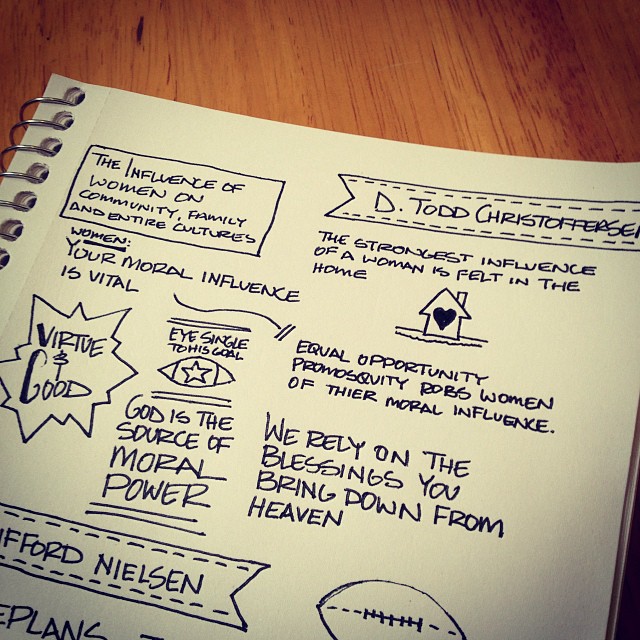 THE INFLUENCE OF
WOMEN ON
COMMUNITY, FAMILY
AND ENTIRE CULTURES
D. TODD CHRISTOFFERSEN
WOMEN:
YOUR MORAL INFLUENCE
IS VITAL
THE STRONGEST INFLUENCE
OF A WOMAN IS FELT IN THE
HOME
VIRTUE
&
GOOD
EYE SINGLE
TO HIS GOAL
EQUAL OPPORTUNITY
PROMOSQUITY ROBS WOMEN
OF THIER MORAL INFLUENCE.
GOD IS THE
SOURCE OF
MORAL
POWER
WE RELY ON THE
BLESSINGS YOU
BRING DOWN FROM
HEAVEN
IFFORD NIELSEN
EPLANS